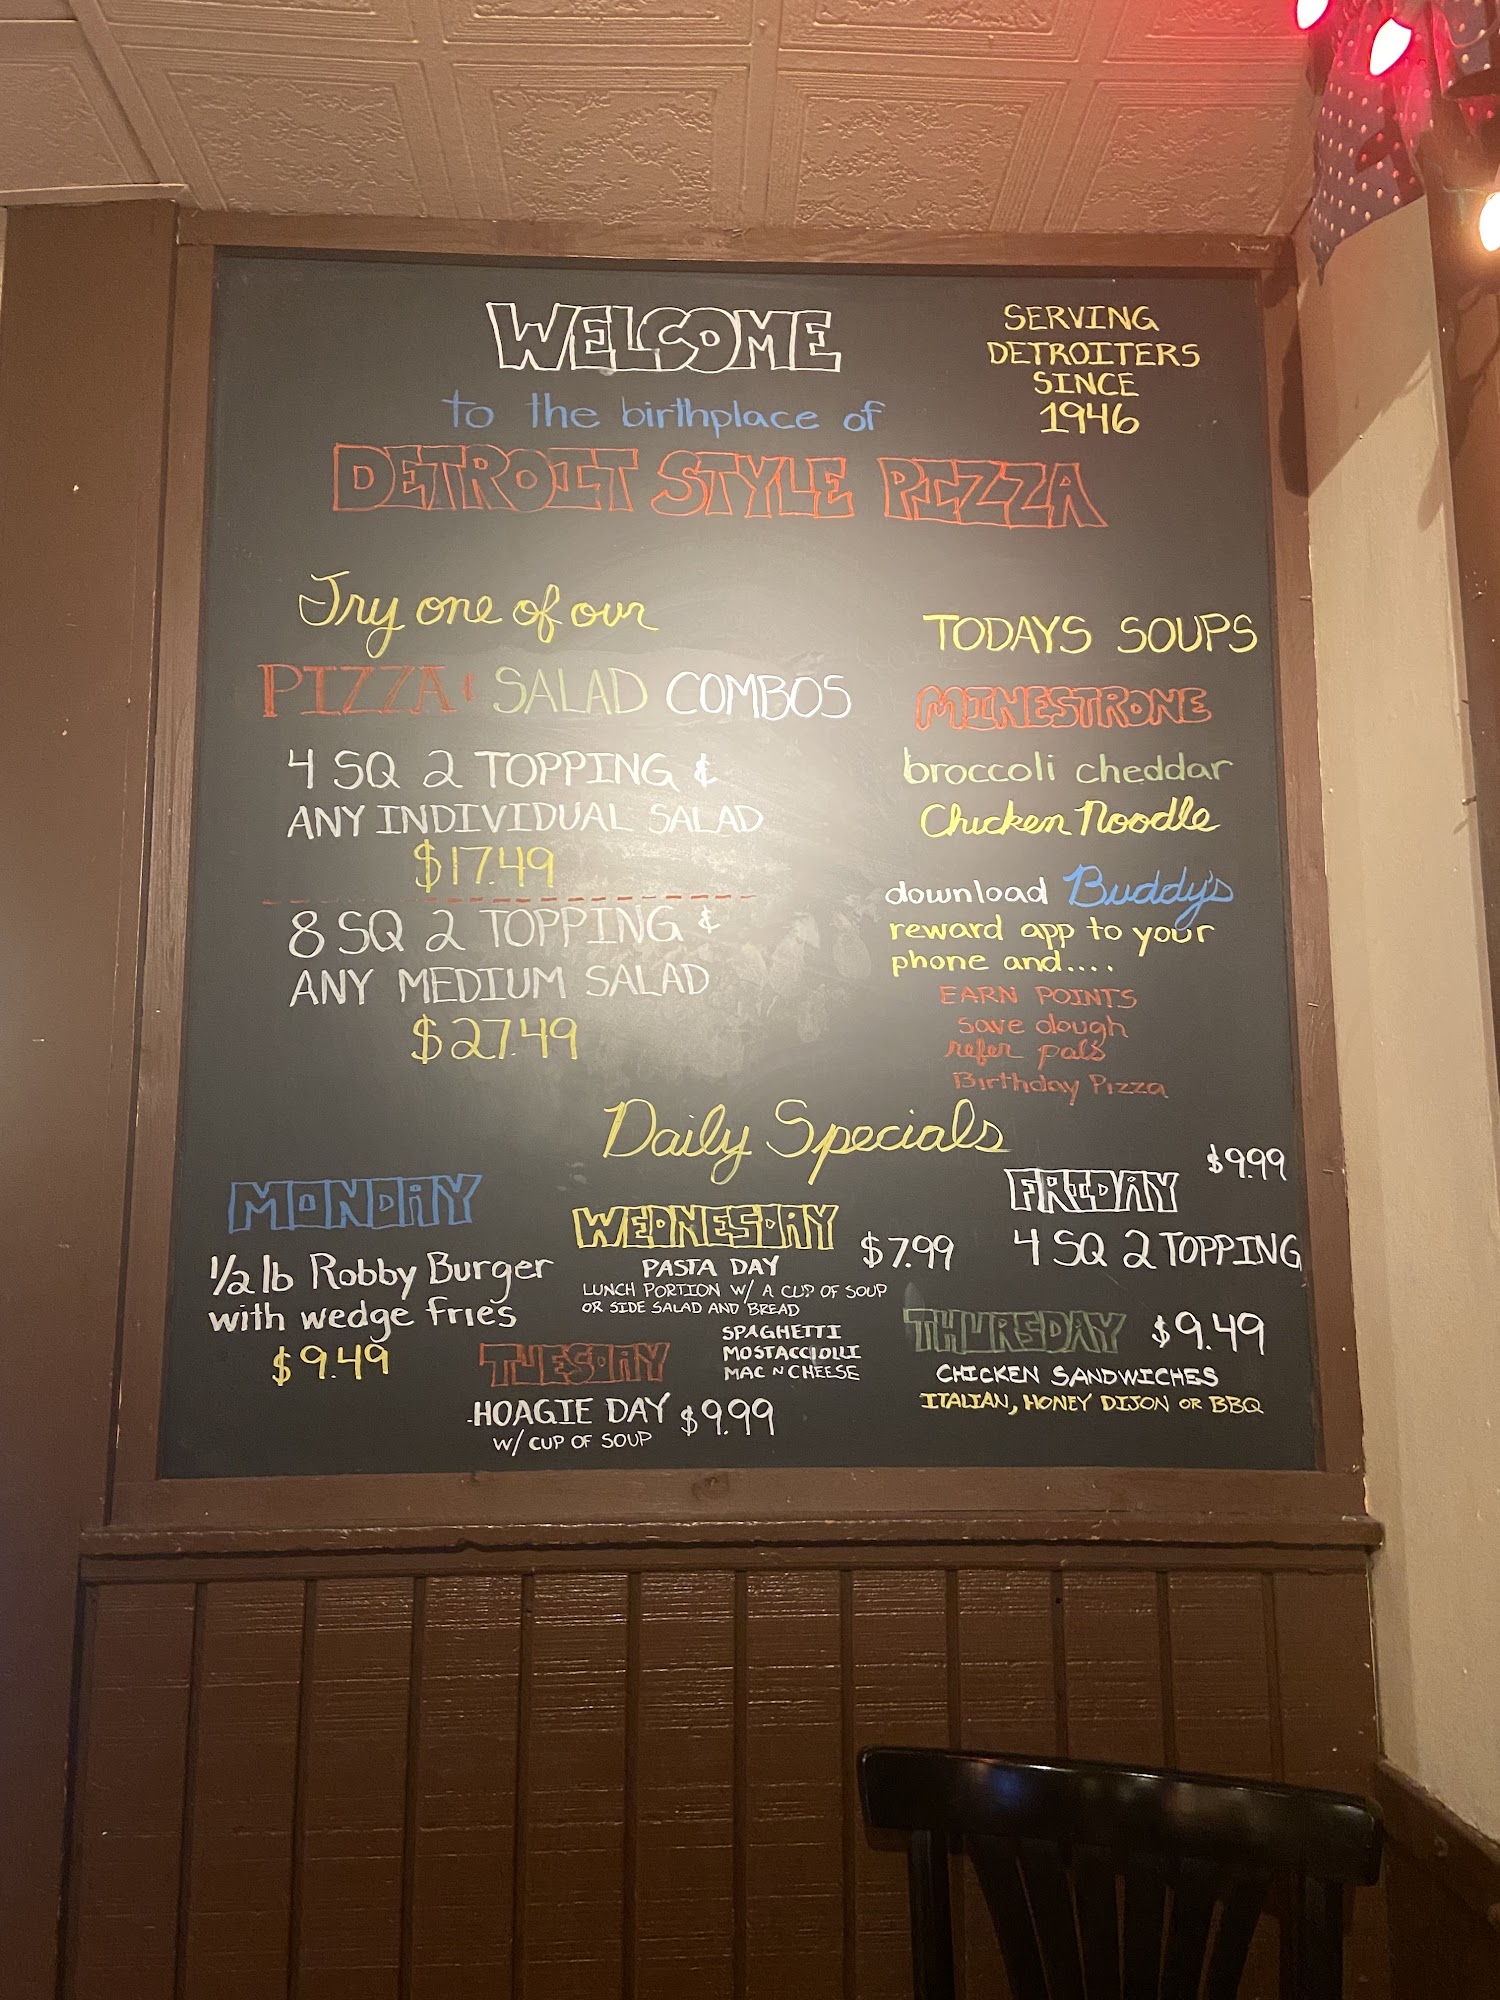 WELCOME
to the birthplace of
DETROIT STYLE PIZZA
SERVING
DETROITERS
SINCE
1946
Try one of our
PIZZA & SALAD COMBOS
4 SQ 2 TOPPING &
ANY INDIVIDUAL SALAD
$17.49
8 SQ 2 TOPPING &
ANY MEDIUM SALAD
$27.49
TODAYS SOUPS
MINESTRONE
broccoli cheddar
Chicken Noodle
download Buddy's
reward app to your
phone and....
EARN POINTS
save dough
refer pals
Birthday Pizza
Daily Specials
MONDAY
1/2 lb Robby Burger
with wedge fries
$9.49
TUESDAY
HOAGIE DAY $9.99
W/ CUP OF SOUP
WEDNESDAY
PASTA DAY $7.99
LUNCH PORTION W/ A CUP OF SOUP
OR SIDE SALAD AND BREAD
SPAGHETTI
MOSTACCIOLLI
MAC N CHEESE
THURSDAY $9.49
CHICKEN SANDWICHES
ITALIAN, HONEY DIJON OR BBQ
FRIDAY $9.99
4 SQ 2 TOPPING